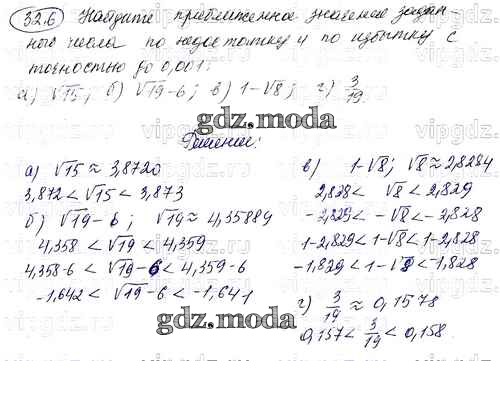 32.6 Найдите приближенное значение задан-
ного числа по недостатку и по избытку с
точностью до 0,001:
а) √15; б) √19-6; в) 1-√8; г) 3/19.
gdz.moda
Решение:
а) √15 ≈ 3,8720
3,872 < √15 < 3,873
б) √19-6; √19 ≈ 4,35889
4,358 < √19 < 4,359
4,358-6 < √19-6 < 4,359-6
-1,642 < √19-6 < -1,641
в) 1-√8; √8 ≈ 2,8284
2,828 < √8 < 2,829
-2,829 < -√8 < -2,828
1-2,829 < 1-√8 < 1-2,828
-1,829 < 1-√8 < -1,828
г) 3/19 ≈ 0,1578
0,157 < 3/19 < 0,158.
gdz.moda